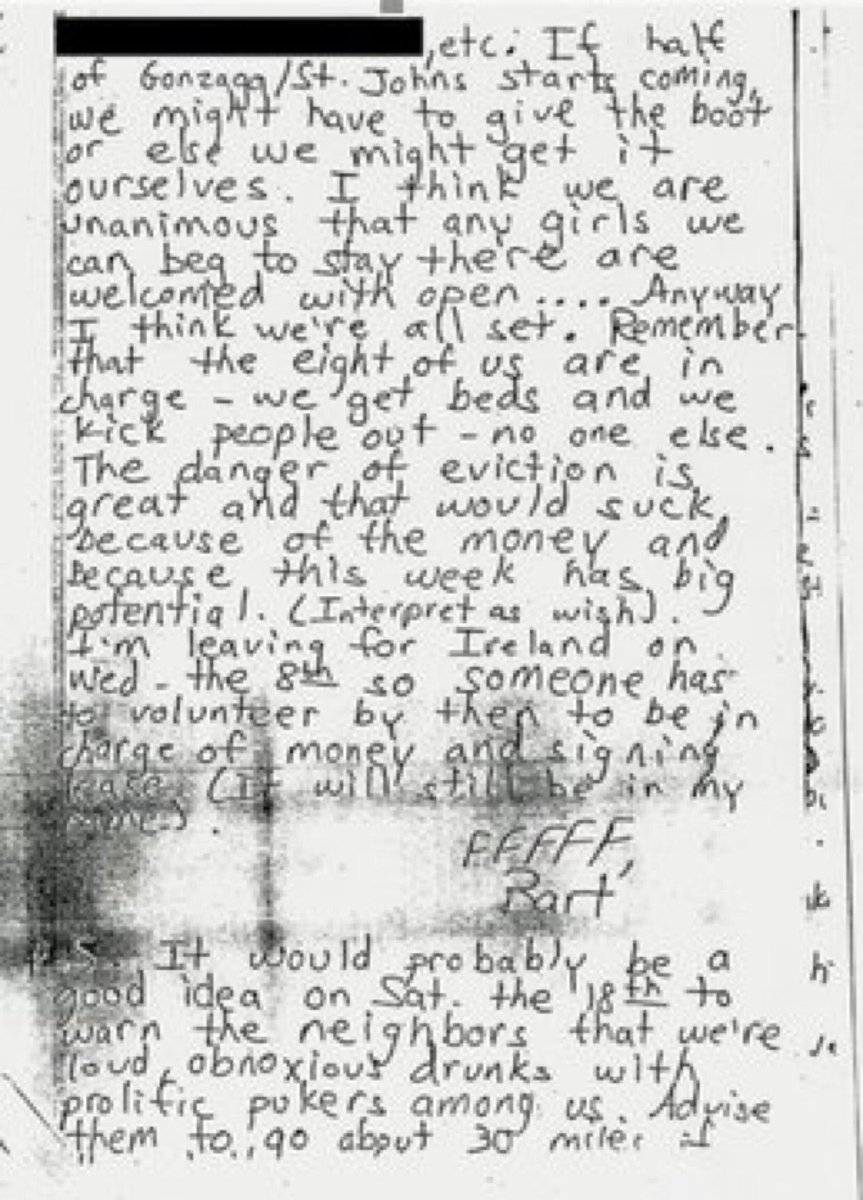 ,etc. If half
of Gonzaga/St. Johns starts coming,
we might have to give the boot
or else we might get it
ourselves. I think we are
unanimous that any girls we
can beg to stay there are
welcomed with open.... Anyway
I think we're all set. Remember
that the eight of us are in
charge - we get beds and we
kick people out - no one else.
The danger of eviction is
great and that would suck
because of the money and
because this week has big
potential. (Interpret as wish).
I'm leaving for Ireland on
Wed - the 8th so someone has
to volunteer by then to be in
charge of money and signing
lease. (It will still be in my
name.).
FFFFF,
Bart
P.S. It would probably be a
good idea on Sat. the 18th to
warn the neighbors that we're
loud, obnoxious drunks with
prolific pukers among us. Advise
them to go about 30 miles